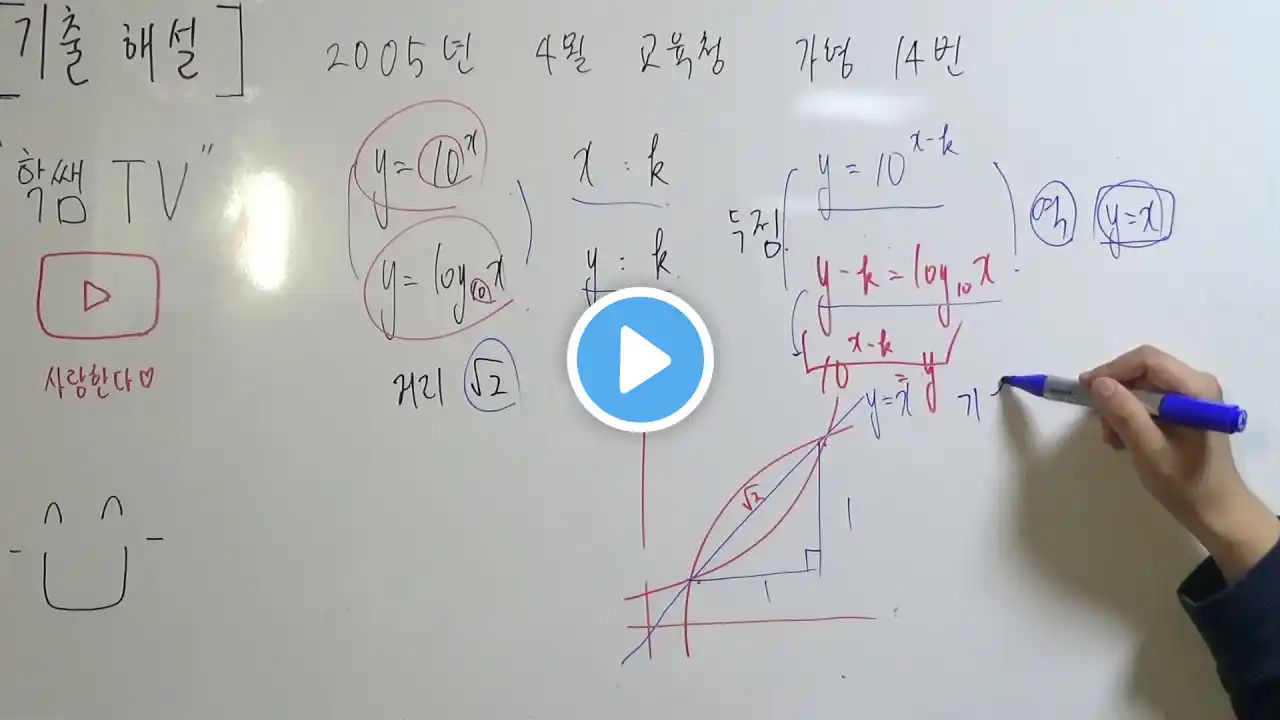 [기출 해설]
2005년 4월 교육청 가형 14번
"학쌤 TV"
사랑한다♡
y=10^x
y=log₁₀x
거리 √2
x : k
y : k
두점
y=10^(x-k)
y-k=log₁₀x
10^(x-k)=y
역 y=x
y=x
기
√2
1
1